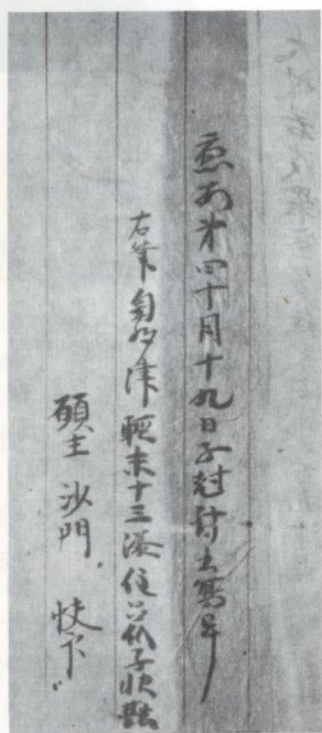 應永第四十月十九日子尅計書寫畢
右筆奥州津輕末十三湊住呂弘子快融
願主 沙門 快下